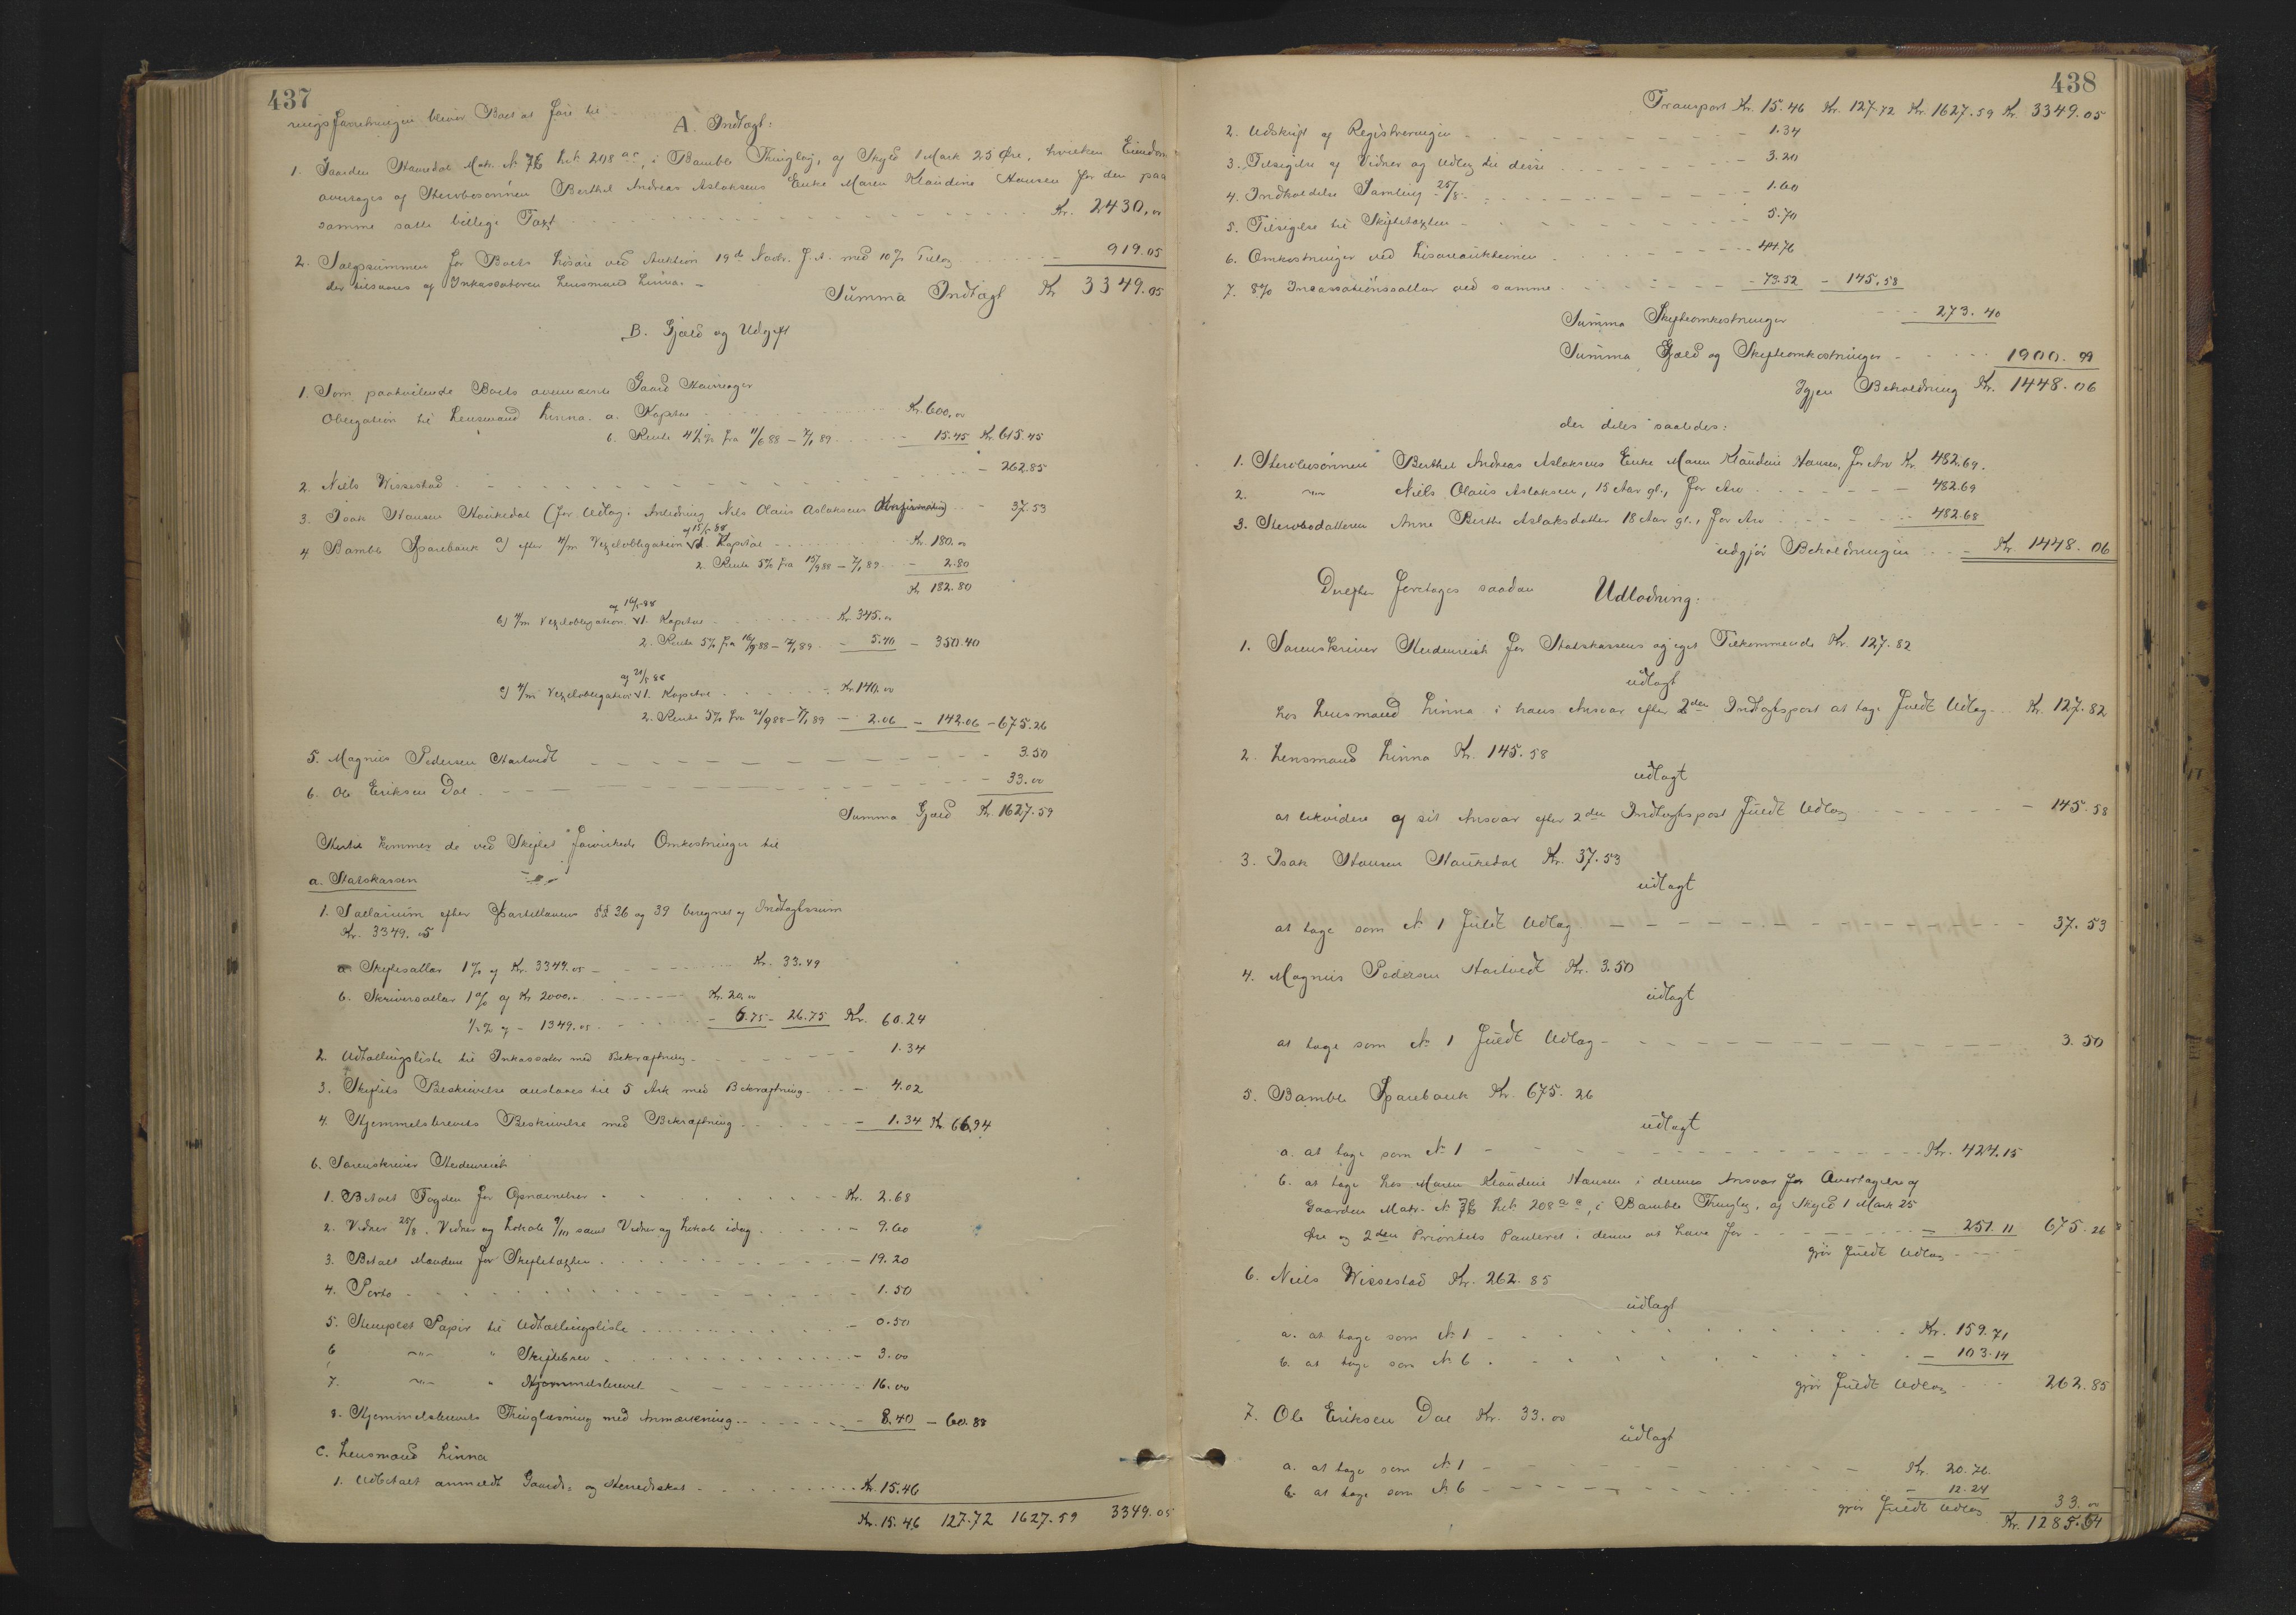 437
ringsforretningen bliver Boet at føre til
A Indtægt:
1. Gaarden Haukedal Matr. № 76 Lb. 208 a c, i Bamble Thinglag, af Skyld 1 Mark 25 Øre, hvilken Eiendom
overtages af Stervbosønnen Berthel Andreas Aslaksens Enke Maren Klaudine Hansen for den paa
samme satte billige Taxt Kr. 2430,00
2. Salgssummen for Boets Løsøre ved Auktion 19de Novbr. f. A. med 10% Tillæg - 919.05
der tilsvares af Inkassatoren Lensmand Linna. -
Summa Indtægt Kr 3349.05
B. Gjæld og Udgift
1. Som paahvilende Boets ovennævnte Gaard
Obligation til Lensmand Linna. a. Kapital Kr. 600,00
b. Rente 4½% fra 11/6 88 - 7/1 89 - 15.45 Kr. 615.45
2. Niels Wissestad - 262.85
3. Isak Hansen Haukedal (for Udlæg i Anledning Nils Olaus Aslaksens Konfirmation) - 37.53
4 Bamble Sparebank a) efter 4/m Vexelobligation af 15/5-88 1. Kapital Kr. 180.00
2. Rente 5% fra 15/9 88 - 7/1 89 - 2.80
Kr. 182.80
b) 4/m Vexelobligation af 16/5-88 1. Kapital Kr. 345.00
2. Rente 5% fra 16/9 88 - 7/1 89 - 5.40 - 350.40
c) 4/m Vexelobligation af 21/5 88 1. Kapital Kr. 140.00
2. Rente 5% fra 21/9 88 - 7/1 89 - 2.06 - 142.06 - 675.26
5. Magnus Pedersen Hartvedt - 3.50
6. Ole Eriksen Dal - 33.00
Summa Gjæld Kr. 1627.59
Hertil kommer de ved Skiftet forvirkede Omkostninger til
a. Statskassen
1. Salarium efter Sportellovens §§ 26 og 39 beregnet af Indtægtssum
Kr. 3349.05
a. Skiftesallar 1% af Kr. 3349.05 - Kr. 33.49
b. Skriversallar 1% af Kr 2000.00 Kr. 20.00
½% af - 1349.05 - 6.75 - 26.75 Kr. 60.24
2. Udtællingsliste til Inkassator med Bekræftning - 1.34
3. Skiftets Beskrivelse anslaaes til 5 Ark med Bekræftning - 4.02
4. Hjemmelsbrevets Beskrivelse med Bekræftning - 1.34 Kr. 66.94
b. Sorenskriver Heidenreich
1. Betalt Fogden for Opnævnelser Kr. 2.68
2. Vidner 25/8, Vidner og Lokale 9/11 samt Vidner og Lokale idag - 9.60
3. Betalt Mændene for Skiftetaxten - 19.20
4. Porto - 1.50
5. Stemplet Papir til Udtællingsliste - 0.50
6 -"- " Skiftebrev - 3.00
7. -"- " Hjemmelsbrevet - 16.00
8. Hjemmelsbrevets Thinglæsning med Anmærkning - 8.40 - 60.88
c. Lensmand Linna
1. Udbetalt anmeldt Gaards- og Herredsskat Kr. 15.46
Kr. 15.46 127.72 1627.59 3349.05
438
Transport Kr. 15.46 Kr. 127.72 Kr. 1627.59 Kr. 3349.05
2. Udskrift af Registreringen - 1.34
3. Tilsigelse af Vidner og Udlæg til disse - 3.20
4. Indkaldelse Samling 25/8 - 1.60
5. Tilsigelse til Skiftetaxten - 5.70
6. Omkostninger ved Løsøreauktionen - 44.76
7. 8% Incassationssallar ved samme - 73.52 - 145.58
Summa Skifteomkostninger - 273.40
Summa Gjæld og Skifteomkostninger - 1900.99
Igjen Beholdning Kr. 1448.06
der deles saaledes:
1. Stervbosønnen Berthel Andreas Aslaksens Enke Maren Klaudine Hansen, for Arv Kr. 482.69.
2. -"- Niels Olaus Aslaksen, 15 Aar gl., for Arv - 482.69
3. Stervbodatteren Anne Berthe Aslaksdatter 18 Aar gl., for Arv - 482.68
udgjør Beholdningen - Kr. 1448.06
Derefter foretages saadan Udlodning:
1. Sorenskriver Heidenreich for Statskassens og eget Tilkommende Kr. 127.82
udlagt
hos Lensmand Linna i hans Ansvar efter 2den Indtægtspost at tage fuldt Udlæg Kr. 127.82
2. Lensmand Linna Kr. 145.58
udlagt
at likvidere af sit Ansvar efter 2den Indtægtspost fuldt Udlæg - 145.58
3. Isak Hansen Haukedal Kr. 37.53
udlagt
at tage som № 1 fuldt Udlæg - 37.53
4. Magnus Pedersen Hartvedt Kr. 3.50
udlagt
at tage som № 1 fuldt Udlæg - 3.50
5. Bamble Sparebank Kr. 675.26
udlagt
a. at tage som № 1 - Kr. 424.15
b. at tage hos Maren Klaudine Hansen i dennes Ansvar for Overtagelse af
Gaarden Matr. № 76 Lb. 208 a c, i Bamble Thinglag, af Skyld 1 Mark 25
Øre og 2den Prioritets Panteret i denne at have for - 251.11 675.26
gjør fuldt Udlæg
6. Niels Wissestad Kr. 262.85
udlagt
a. at tage som № 1 - Kr. 159.71
b. at tage som № 6 - 103.14
gjør fuldt Udlæg 262.85
7. Ole Eriksen Dal Kr. 33.00
udlagt
a. at tage som № 1 - Kr. 20.76.
b. at tage som № 6 - 12.24
gjør fuldt Udlæg 33.00
Kr. 1285.54